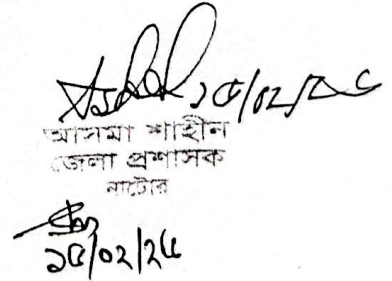 ১৫/০২/২৫
আসমা শাহীন
জেলা প্রশাসক
নাটোর
১৫/০২/২৫